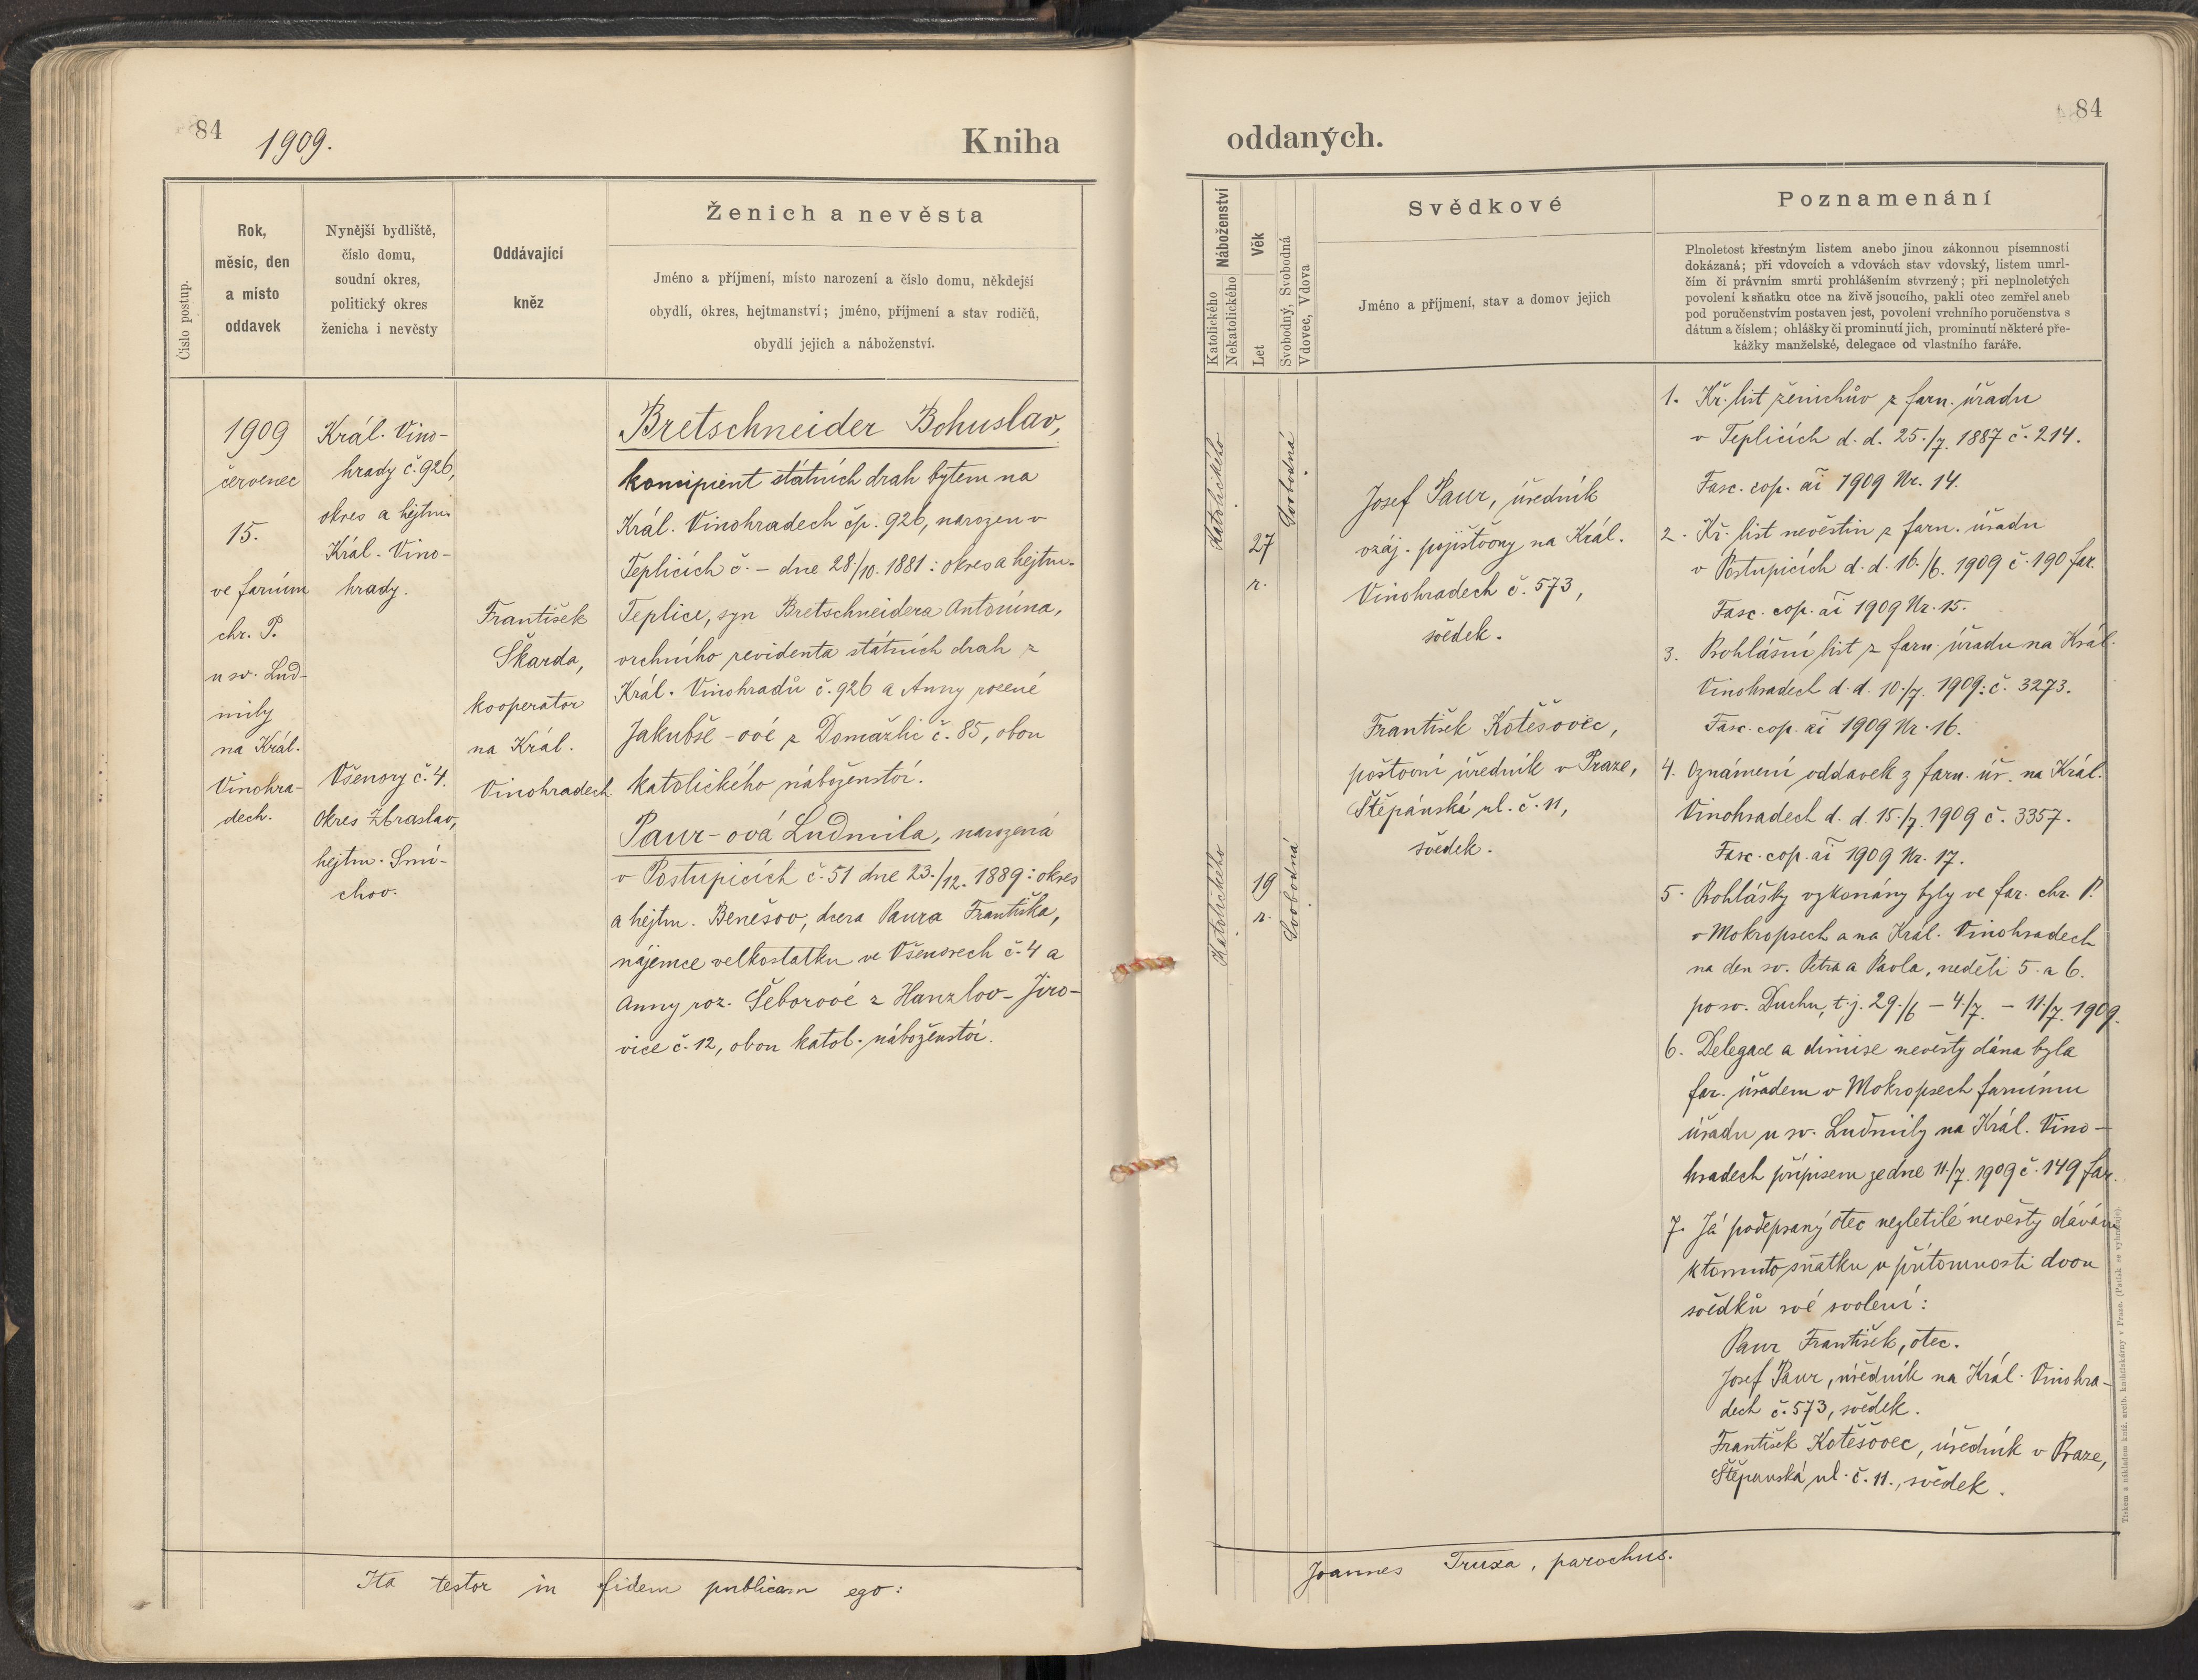 84
1909.
Kniha
Číslo postup.
Rok,
měsíc, den
a místo
oddavek
Nynější bydliště,
číslo domu,
soudní okres,
politický okres
ženicha i nevěsty
Oddávající
kněz
Ženich a nevěsta
Jméno a příjmení, místo narození a číslo domu, někdejší
obydlí, okres, hejtmanství; jméno, příjmení a stav rodičů,
obydlí jejich a náboženství.
1909
červenec
15.
ve farním
chr. P.
u sv. Lud-
mily
na Král.
Vinohra-
dech.
Král. Vino-
hrady č. 926,
okres a hejtm.
Král. Vino-
hrady.
Všenory č. 4.
Okres Zbraslav,
hejtm. Smí-
chov.
František
Škarda,
kooperator
na Král.
Vinohradech
Bretschneider Bohuslav,
koncipient státních drah bytem na
Král. Vinohradech čp. 926, narozen v
Teplicích č. – dne 28./10. 1881: okres a hejtm.
Teplice, syn Bretschneidera Antonína,
vrchního revidenta státních drah z
Král. Vinohradů č. 926 a Anny rozené
Jakubše-ové z Domažlic č. 85, obou
katolického náboženství.
Paur-ová Ludmila, narozená
v Postupicích č. 51 dne 23./12. 1889: okres
a hejtm. Benešov, dcera Paura Františka,
nájemce velkostatku ve Všenorech č. 4 a
Anny roz. Šeborové z Hanzlov-Jiro-
vice č. 12, obou katol. náboženství.
Ita testor in fidem publicam ego:
84
oddaných.
Náboženství
Katolického
Nekatolického
Věk
Let
Svobodný, Svobodná
Vdovec, Vdova
Svědkové
Jméno a příjmení, stav a domov jejich
Poznamenání
Plnoletost křestným listem anebo jinou zákonnou písemností
dokázaná; při vdovcích a vdovách stav vdovský, listem umrl-
čím či právním smrti prohlášením stvrzený; při neplnoletých
povolení k sňatku otce na živě jsoucího, pakli otec zemřel aneb
pod poručenstvím postaven jest, povolení vrchního poručenstva s
dátum a číslem; ohlášky či prominutí jich, prominutí některé pře-
kážky manželské, delegace od vlastního faráře.
Katolického
27
r.
Svobodná
Katolického
19
r.
Svobodná
Josef Paur, úředník
vzáj. pojišťovny na Král.
Vinohradech č. 573,
svědek.
František Kotěšovec,
poštovní úředník v Praze,
Štěpánská ul. č. 11,
svědek.
1. Kř. list ženichův z farn. úřadu
v Teplicích d. d. 25./7. 1887 č. 214.
Fasc. cop. ai 1909 Nr. 14.
2. Kř. list nevěstin z farn. úřadu
v Postupicích d. d. 16./6. 1909 č. 190 far.
Fasc. cop. ai 1909 Nr. 15.
3. Prohlášní list z farn. úřadu na Král.
Vinohradech d. d. 10./7. 1909: č. 3273.
Fasc. cop. ai 1909 Nr. 16.
4. Oznámení oddavek z farn. úř. na Král.
Vinohradech d. d. 15./7. 1909 č. 3357.
Fasc. cop. ai 1909 Nr. 17.
5. Prohlášky vykonány byly ve far. chr. P.
v Mokropsech a na Král. Vinohradech
na den sv. Petra a Pavla, neděli 5. a 6.
po sv. Duchu, t. j. 29./6 – 4./7. – 11./7. 1909.
6. Delegace a dimise nevěsty dána byla
far. úřadem v Mokropsech farnímu
úřadu u sv. Ludmily na Král. Vino-
hradech přípisem ze dne 11./7. 1909 č. 149 far.
7. Já podepsaný otec nezletilé nevěsty dávám
k tomuto sňatku v přítomnosti dvou
svědků své svolení:
Paur František, otec.
Josef Paur, úředník na Král. Vinohra-
dech č. 573, svědek.
František Kotěšovec, úředník v Praze,
Štěpanská ul. č. 11., svědek.
Joannes Truxa, parochus.
Tiskem a nákladem kníž. arcib. knihtiskárny v Praze. (Patisk se vyhražuje).